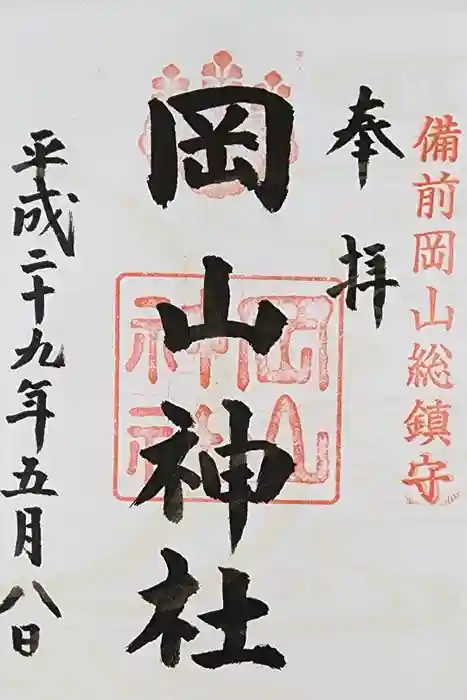 備前岡山総鎮守
奉拝
岡山神社
岡山神社
平成二十九年五月八日